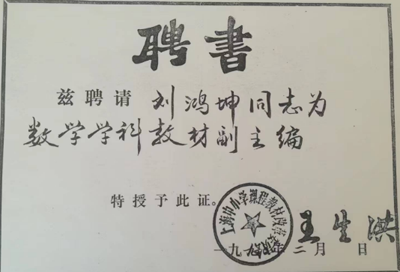 聘书
兹聘请 刘鸿坤 同志为
数学学科教材副主编
特授予此证。
上海中小学课程教材改革委员会
王生洪
一九 二月 日